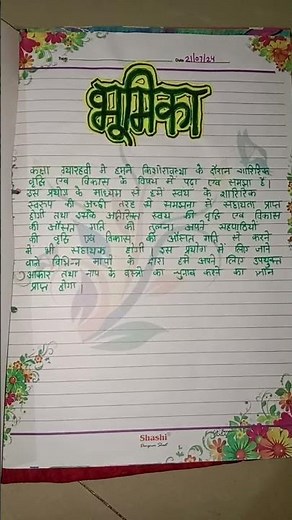 Date 21/07/24
भूमिका
कक्षा ग्यारहवी में हमने किशोरावस्था के दौरान शारिरिक
वृद्धि एवं विकास के विषय में पढ़ा एवं समझा है।
उस प्रयोग के माध्यम से हमे स्वयं के शारिरिक
स्वरूप को अच्छी तरह से समझने में सहायता प्राप्त
होगी तथा उसके अतिरिक्त स्वयं की वृद्धि एवं विकास
की औसत गति की तुलना अपने सहपाठियों
की वृद्धि एवं विकास की औसत गति से करने
में भी सहायक होगी। उस प्रयोग में लिए जाने
वाले विभिन्न मापों के द्वारा हमें अपने लिए उपयुक्त
आकार तथा नाप के वस्त्रों का चुनाव करने का ज्ञान
प्राप्त होगा।
Shashi